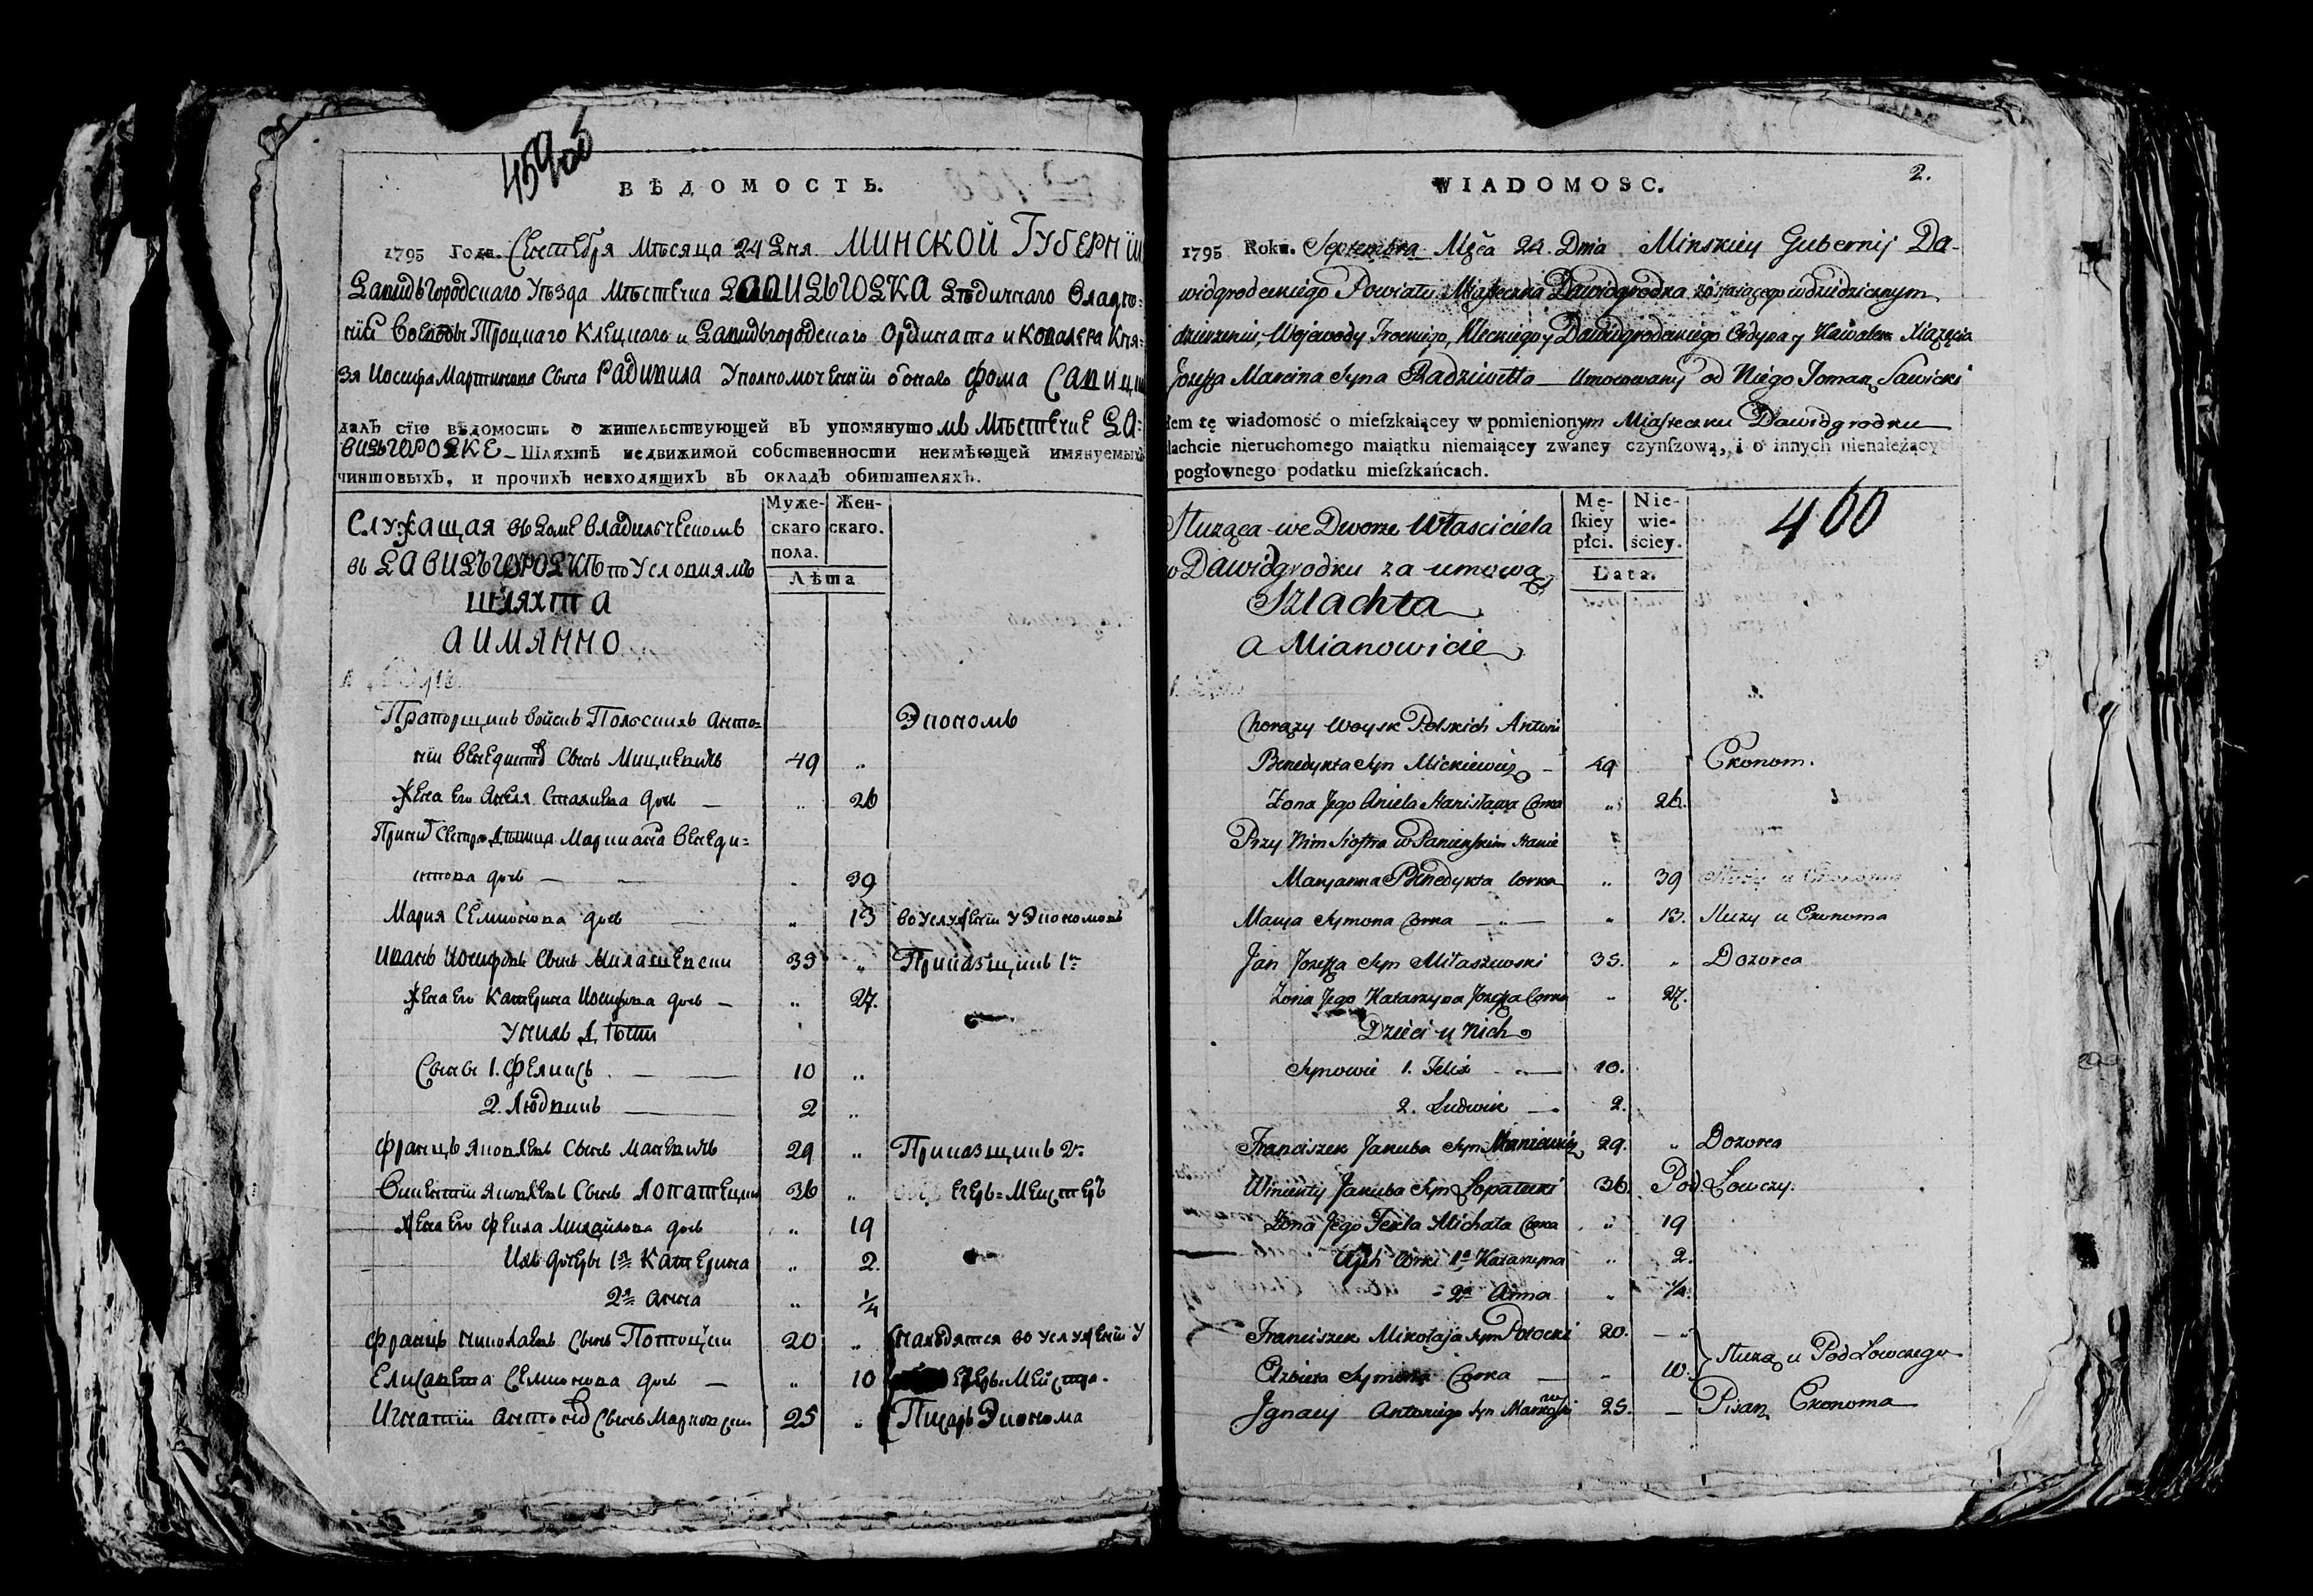 459об
ВѢДОМОСТЬ.
1795 Года. Сентебря Мѣсяца 24 Дня МИНСКОЙ ГУБЕРНїИ
Давидъгородскаго Уѣзда Мѣстечка ДАВИДЪГОРДКА Дѣдичнаго Владѣ=
нїй Воеводы Троцкаго Клецкаго и Давидьгородскаго Ордината и Ковалера Кня=
зя Иосифа Мартинова Сына Радивила Уполномоченнїй Фома Савицки
далъ сїю вѣдомость о жительствующей въ упомянутомъ Мѣстечке ДА=
ВИДЬГОРОДКЕ Шляхтѣ недвижимой собственности неимѣющей имянуемыхъ
чиншовыхъ, и прочихъ невходящихъ въ окладъ обитателяхъ.
Служащая въ Доме Владильческомъ
въ ДАВИДЪГОРОДКѢ по Условиямъ
ШЛЯХТА
А ИМЯННО
Муже-скаго пола. Жен-скаго.
Лѣта
Прапорщикъ Войскъ Польскихъ Анто=
нїи Венедиктов Сынъ Мицкевичь 49 „ Экономъ
Жена Его Анеля Станислава дочь — „ 26
При нем Сестра Дѣвица Марианна Венеди=
ктова дочь — 39
Мария Семионова дочь „ 13 во Услужении у Экономов
Иванъ Иосифовъ Сынъ Милашевски 35 „ Приказщикъ 1й
Жена Его Катерина Иосифова дочь — „ 27.
У нихъ Дѣти
Сыны 1. Феликсъ 10 „
2. Людвикъ 2 „
Францъ Яковлевъ Сынъ Маневичь 29 „ Приказщикъ 2й
Викентїи Яковлевъ Сынъ Лопатецки 36 „ Егерь=Мейстеръ
Жена Его Фекла Михайлова дочь „ 19
Ихъ дочери 1я Катерина „ 2.
2я Анна „ 1/4
Францъ Николаевъ Сынъ Потоцки 20 „ находятся во услужении У
Елисавета Семионова дочь — „ 10 Егерь-Мейстра.
Игнатїи Антонов Сынъ Марковски 25 „ Писарь Эконома
WIADOMOSC.
2.
1795 Roku. Septembra Mscа 24. Dnia Minskiey Gubernij Da-
widgrodeckiego Powiatu Miasteczka Dawidgrodka zostaiącego w dziedzicznym
dzierzeniu, Wojewody Trockiego, Kleckiego y Dawidgrodeckiego Ordyna y Kawalera Xiązęcia
Jozeffa Marcina Syna Radziwiłła Umocowany od Niego Tomasz Sawicki
łem tę wiadomość o mieſzkaiącey w pomienionym Miasteczku Dawidgrodku
lachcie nieruchomego maiątku niemaiącey zwaney czynſzową, i o innych nienależący
pogłownego podatku mieſzkańcach.
Służąca we Dworze Własciciela
w Dawidgrodku za umową
Szlachta
a Mianowicie
Mę-ſkiey płci. Nie-wie-ściey.
Lata.
460
Chorązy Woysk Polskich Antoni
Benedykta Syn Mickiewicz — 49 Ekonom.
Zona Jego Aniela Stanisława Corka „ 26.
Przy Nim Siostra w Panienskim Stanie
Maryanna Benedykta Corka „ 39
Marya Symona Corka „ 13. Słuzy u Ekonoma
Jan Jozeffa Syn Miłaszewski 35. „ Dozorca
Zona Jego Katarzyna Jozeffa Corka „ 27.
Dzieci u Nich
Synowie 1. Felix 10.
2. Ludwik 2.
Franciszek Jakuba Syn Maniewicz 29. „ Dozorca
Wincenty Jakuba Syn Łopatecki 36. Pod Łowczy.
Zona Jego Tekla Michała Corka „ 19
Ujch Corki 1a Katarzyna „ 2.
2a Anna „ 1/4.
Franciszek Mikołaja Syn Potocki 20. — „
Elzbieta Symona Corka — „ 10. Służą u Pod Łowczego
Jgnacy Antoniego Syn Markowski 25. — Pisarz Ekonoma